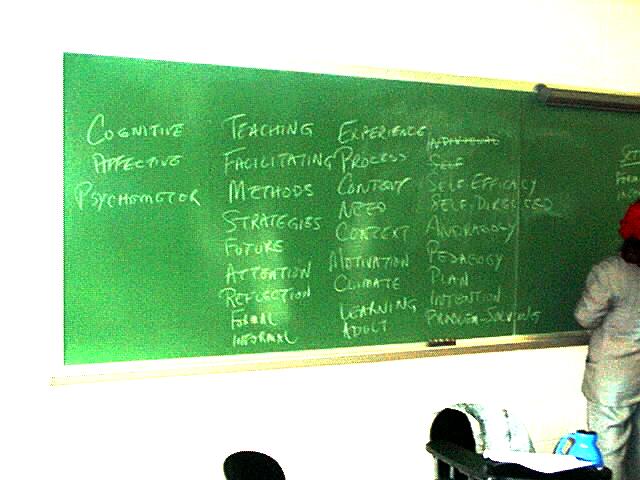 COGNITIVE
AFFECTIVE
PSYCHOMOTOR
TEACHING
FACILITATING
METHODS
STRATEGIES
FUTURE
ATTENTION
REFLECTION
FORMAL
INFORMAL
EXPERIENCE
PROCESS
CONTENT
NEED
CONTEXT
MOTIVATION
CLIMATE
LEARNING
ADULT
INDIVIDUAL
SELF
SELF-EFFICACY
SELF-DIRECTED
ANDRAGOGY
PEDAGOGY
PLAN
INTENTION
PROBLEM-SOLVING